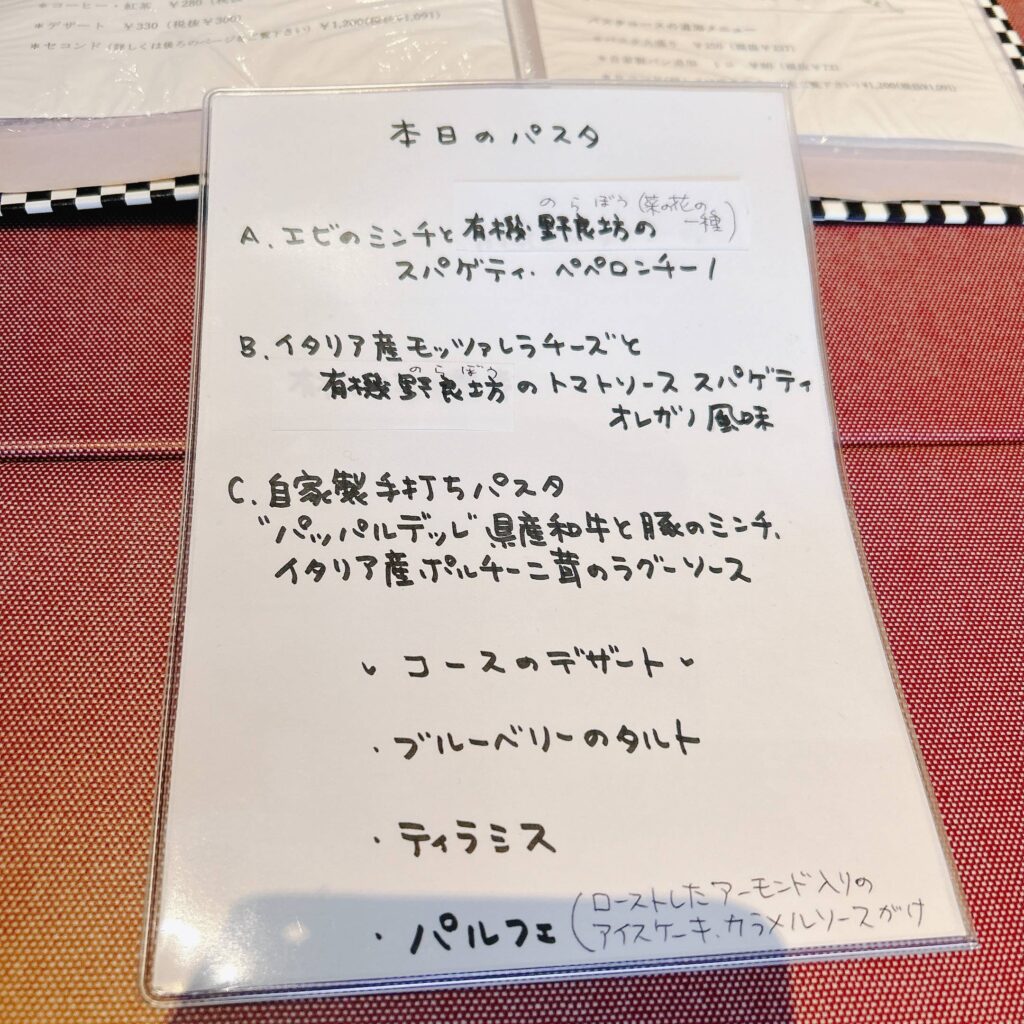 ＊コーヒー・紅茶 ￥280（税抜
＊デザート ￥330（税抜￥300）
＊セコンド（詳しくは後ろのページをご覧下さい）￥1,200（税抜￥1,091）
パスタコースの追加メニュー
＊パスタ大盛り ￥250（税抜￥227）
＊自家製パン追加 1コ ￥80（税抜￥73）
￥1,200（税抜￥1,091）
本日のパスタ
のらぼう（菜の花の一種）
A. エビのミンチと有機野良坊の
スパゲティ. ペペロンチーノ
B. イタリア産モッツァレラチーズと
のらぼう
有機野良坊のトマトソース スパゲティ
オレガノ風味
C. 自家製手打ちパスタ
"パッパルデッレ" 県産和牛と豚のミンチ、
イタリア産ポルチーニ茸のラグーソース
コースのデザート
・ブルーベリーのタルト
・ティラミス
・パルフェ（ローストしたアーモンド入りの
アイスケーキ、カラメルソースがけ